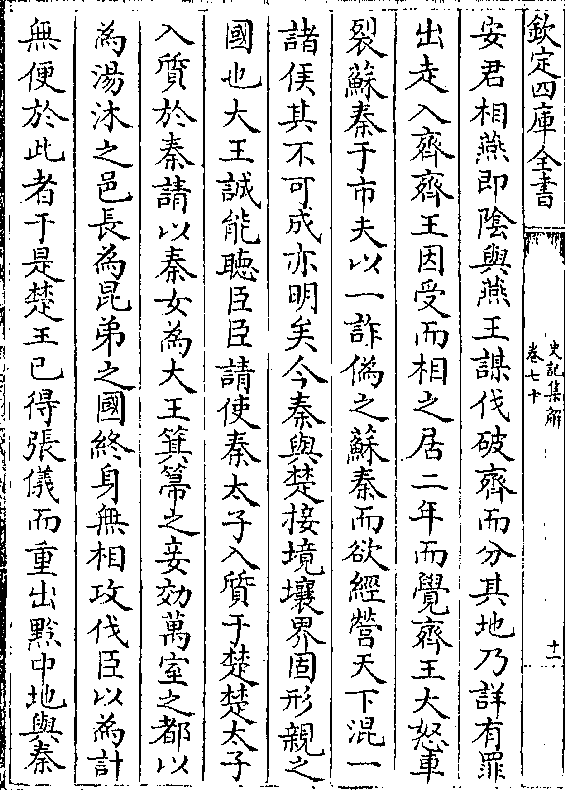 欽定四庫全書
史記集解
卷七十
十一
安君相燕即陰與燕王謀伐破齊而分其地乃詳有罪
出走入齊齊王因受而相之居二年而覺齊王大怒車
裂蘇秦于市夫以一詐偽之蘇秦而欲經營天下混一
諸侯其不可成亦明矣今秦與楚接境壤界固形親之
國也大王誠能聽臣臣請使秦太子入質于楚楚太子
入質於秦請以秦女為大王箕箒之妾効萬室之都以
為湯沐之邑長為昆弟之國終身無相攻伐臣以為計
無便於此者于是楚王已得張儀而重出黔中地與秦